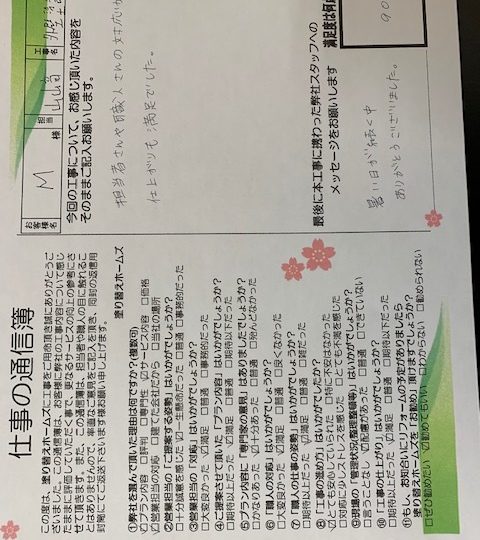 仕事の通信簿
この度は、塗り替えホームズに工事をご用命頂き誠にありがとうございました。この通信簿は、お客様が弊社の工事内容について感じたままに評価していただく事で、更なるサービスの向上の参考にさせて頂きます。また、この通信簿は、担当者や職人の目に触れることはありませんので、率直なご意見をご記入頂き、同封の返信用封筒にてご返送下さいます様お願い申し上げます。
塗り替えホームズ
①弊社を選んで頂いた理由は何ですか?(複数可)
☑プラン内容 □評判 □専門性 ☑サービス内容 □価格
☑営業担当の対応 □建てた会社だから □当社の場所
②営業担当の「ご提案する姿勢」はいかがでしょうか?
□十分誠意を感じた ☑一生懸命だった □普通 □事務的だった
③営業担当の「対応」はいかがでしょうか?
□大変良かった ☑満足 □普通 □事務的だった
④ご提案させて頂いた「プラン内容」はいかがでしょうか?
□期待以上だった ☑満足 □普通 □期待以下だった
⑤プラン内容に「専門家の意見」はありましたか?
□かなりあった ☑十分あった □普通 □殆んどなかった
⑥「職人の対応」はいかがでしょうか?
□大変良かった ☑満足 □普通 □良くなかった
⑦「職人の仕事の姿勢」はいかがでしょうか?
□期待以上だった ☑満足 □普通 □雑だった
⑧「工事の進め方」はいかがでしたか?
☑とても安心していられた □特に不安はなかった
□対応に少しストレスを感じた □とても不満を感じた
⑨現場の「管理状況(整理整頓等)」はいかがでしょうか?
□言うことなし ☑配慮があった □普通 □できていない
⑩「工事の仕上がり」はいかがでしょうか?
□期待以上だった ☑満足 □普通 □期待以下だった
⑪もし、お知合いにリフォームの予定がありましたら
塗り替えホームズを「お勧め」頂けますでしょうか?
□ぜひ勧めたい ☑勧めてもいい □わからない □勧められない
お客様名
M
様
担当
工事名
今回の工事について、お感じ頂いた内容を
そのままご記入お願いします。
担当者さんや職人さんの対応
仕上がりも満足でした。
最後に本工事に携わった弊社スタッフへの
メッセージをお願いします。
暑い日が続く中
ありがとうございました。
満足度は何点
90